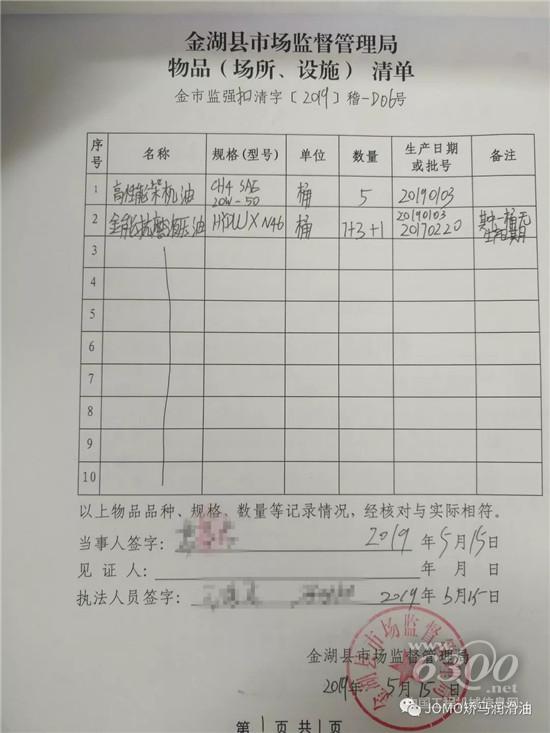 金湖县市场监督管理局
物品（场所、设施）清单
金市监强扣清字〔2019〕稽-D06号
序号 名称 规格(型号) 单位 数量 生产日期或批号 备注
1 高性能柴机油 CH4 SAE 20W-50 桶 5 20190103
2 全能抗磨液压油 HYDLUX N46 桶 7+3+1 20190103 20170220 其中一桶无生产日期
3
4
5
6
7
8
9
10
以上物品品种、规格、数量等记录情况，经核对与实际相符。
当事人签字： 2019年5月15日
见证人： 年 月 日
执法人员签字： 2019年5月15日
金湖县市场监督管理局
2019年5月15日
第1页共1页
6300.net
中国工程机械信息网
JOMO矫马润滑油